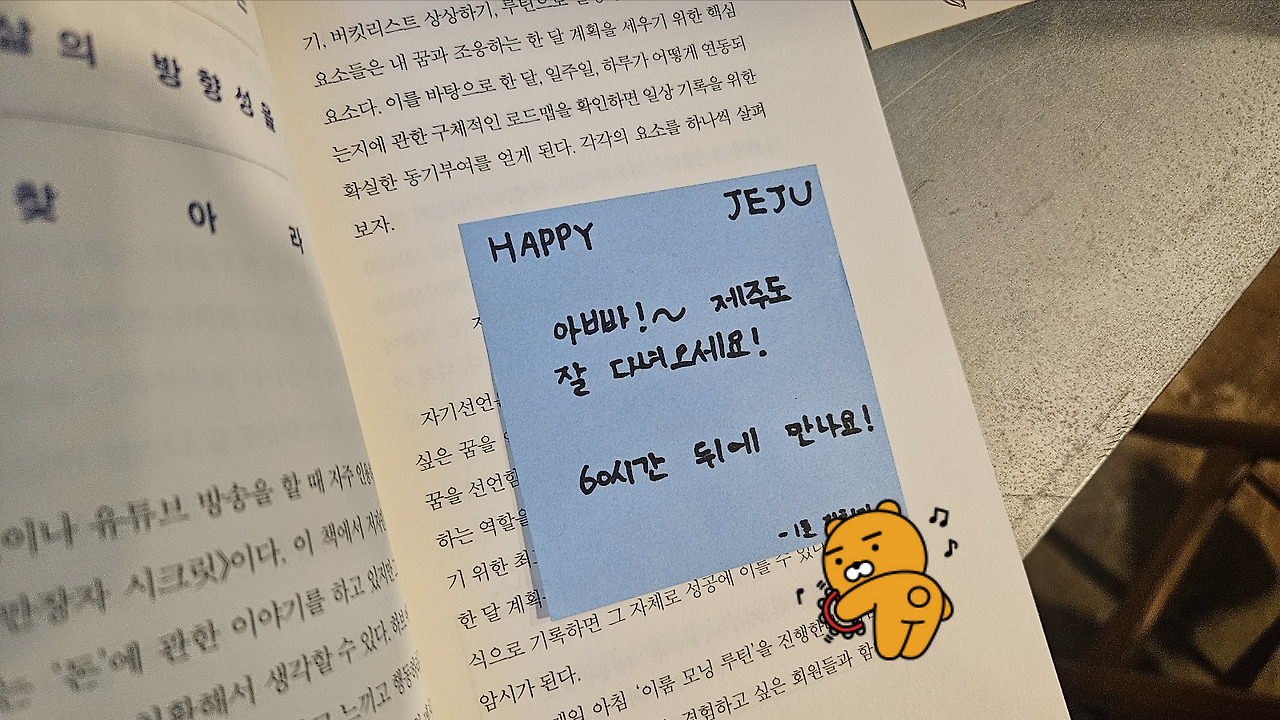 삶의 방향성을
찾 아 라
이나 유튜브 방송을 할 때 자주
시크릿〉이다. 이 책에서
'돈'에 관한 이야기를 하고
해서 생각할 수 있다.
느끼고
기, 버킷리스트 상상하기, 루틴으로
요소들은 내 꿈과 조응하는 한 달 계획을 세우기 위한 핵심
요소다. 이를 바탕으로 한 달, 일주일, 하루가 어떻게 연동되
는지에 관한 구체적인 로드맵을 확인하면 일상 기록을 위한
확실한 동기부여를 얻게 된다. 각각의 요소를 하나씩 살펴
보자.
HAPPY JEJU
아빠빠!~ 제주도
잘 다녀오세요!
60시간 뒤에 만나요!
자기선언
싶은 꿈을
꿈을 선언
하는 역할을
기 위한
한 달 계획
성공에 이를 수 있다
식으로 기록하면 그 자체로
암시가 된다.
매일 아침 '이름 모닝 루틴'을 진행한
경험하고 싶은 회원들과 함